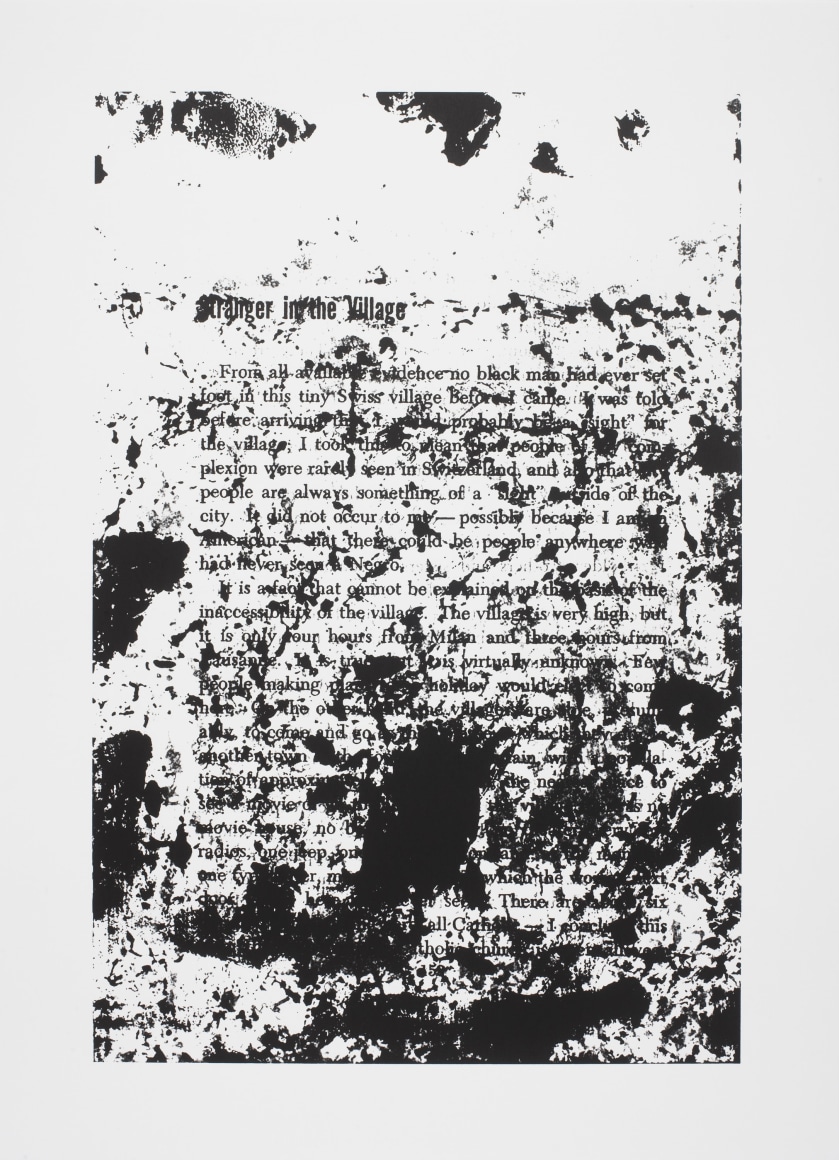 Stranger in the Village
From all available evidence no black man had ever set
foot in this tiny Swiss village before I came. I was told
before arriving that I would probably be a "sight" for
the village; I took this to mean that people of my com-
plexion were rarely seen in Switzerland, and also that city
people are always something of a "sight" outside of the
city. It did not occur to me—possibly because I am an
American—that there could be people anywhere who
had never seen a Negro.
It is a fact that cannot be explained on the basis of the
inaccessibility of the village. The village is very high, but
it is only four hours from Milan and three hours from
Lausanne. It is true that it is virtually unknown. Few
people making plans for a holiday would elect to come
here. On the other hand, the villagers are able, presum-
ably, to come and go as they please which they do
another town at the mountain, with a popula-
tion of approximately the nearest place to
see a movie or go the village no
movie house, no
radios, one jeep, one
one typewriter, mine which the woman next
door here had never seen. There are about six
all Catholic—I conclude this
Catholic church is
159